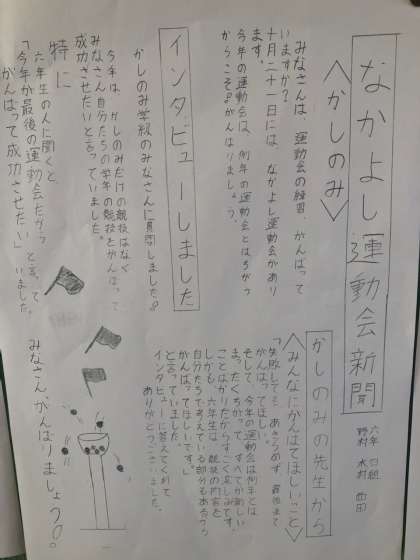 なかよし運動会新聞
六年
〈かしのみ〉
みなさんは、運動会の練習、がんばって
いますか？
十月二十一日には、なかよし運動会があり
ます。
今年の運動会は、例年の運動会とはちがう
からこそ、がんばりましょう。
インタビューしました
かしのみ学級のみなさんに質問しました。
今年は、かしのみだけの競技はなく
みなさん自分たちの学年の競技をがんばって
成功させたいと言っていました。
特に
六年生の人に聞くと、
「今年が最後の運動会だから
がんばって成功させたい」と言って
いました。
かしのみの先生から
〈みんなにがんばてほしいこと〉
「失敗しても、あきらめず、最後まで
がんばってほしい。
そして、今年の運動会は例年とは
まったくちがって、すべてが新しい
ことばかりだからすごく楽しみです。
しかも、六年生は、競技の内容を
自分たちで考えている部分もあるから
がんばってほしいです。」
と言っていました。
インタビューに答えてくれて
ありがとうございました。
みなさん、がんばりましょう。